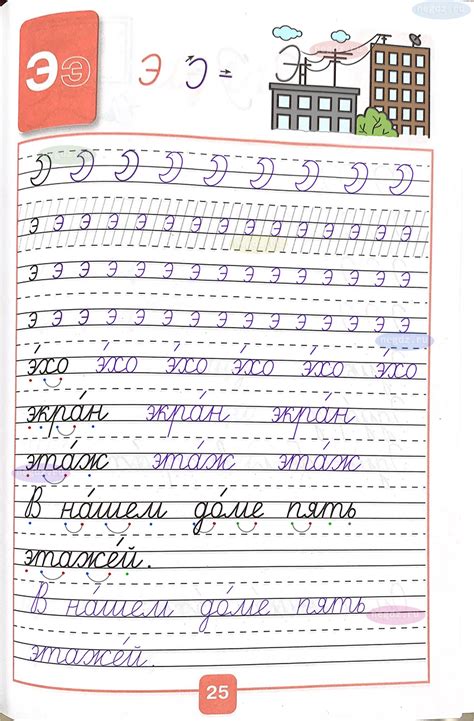 negdz.ru
Э э Э С = Э
Э Э Э Э Э Э Э Э Э
э э э э э э э э э э э э э э э
э э э э э э э э э э э э э э э
э э э э э э э э э э э э э э э
negdz.ru
э́хо э́хо э́хо э́хо э́хо э́хо
экра́н экра́н экра́н
эта́ж эта́ж эта́ж
В на́шем до́ме пять
этаже́й.
В на́шем до́ме пять
этаже́й.
25